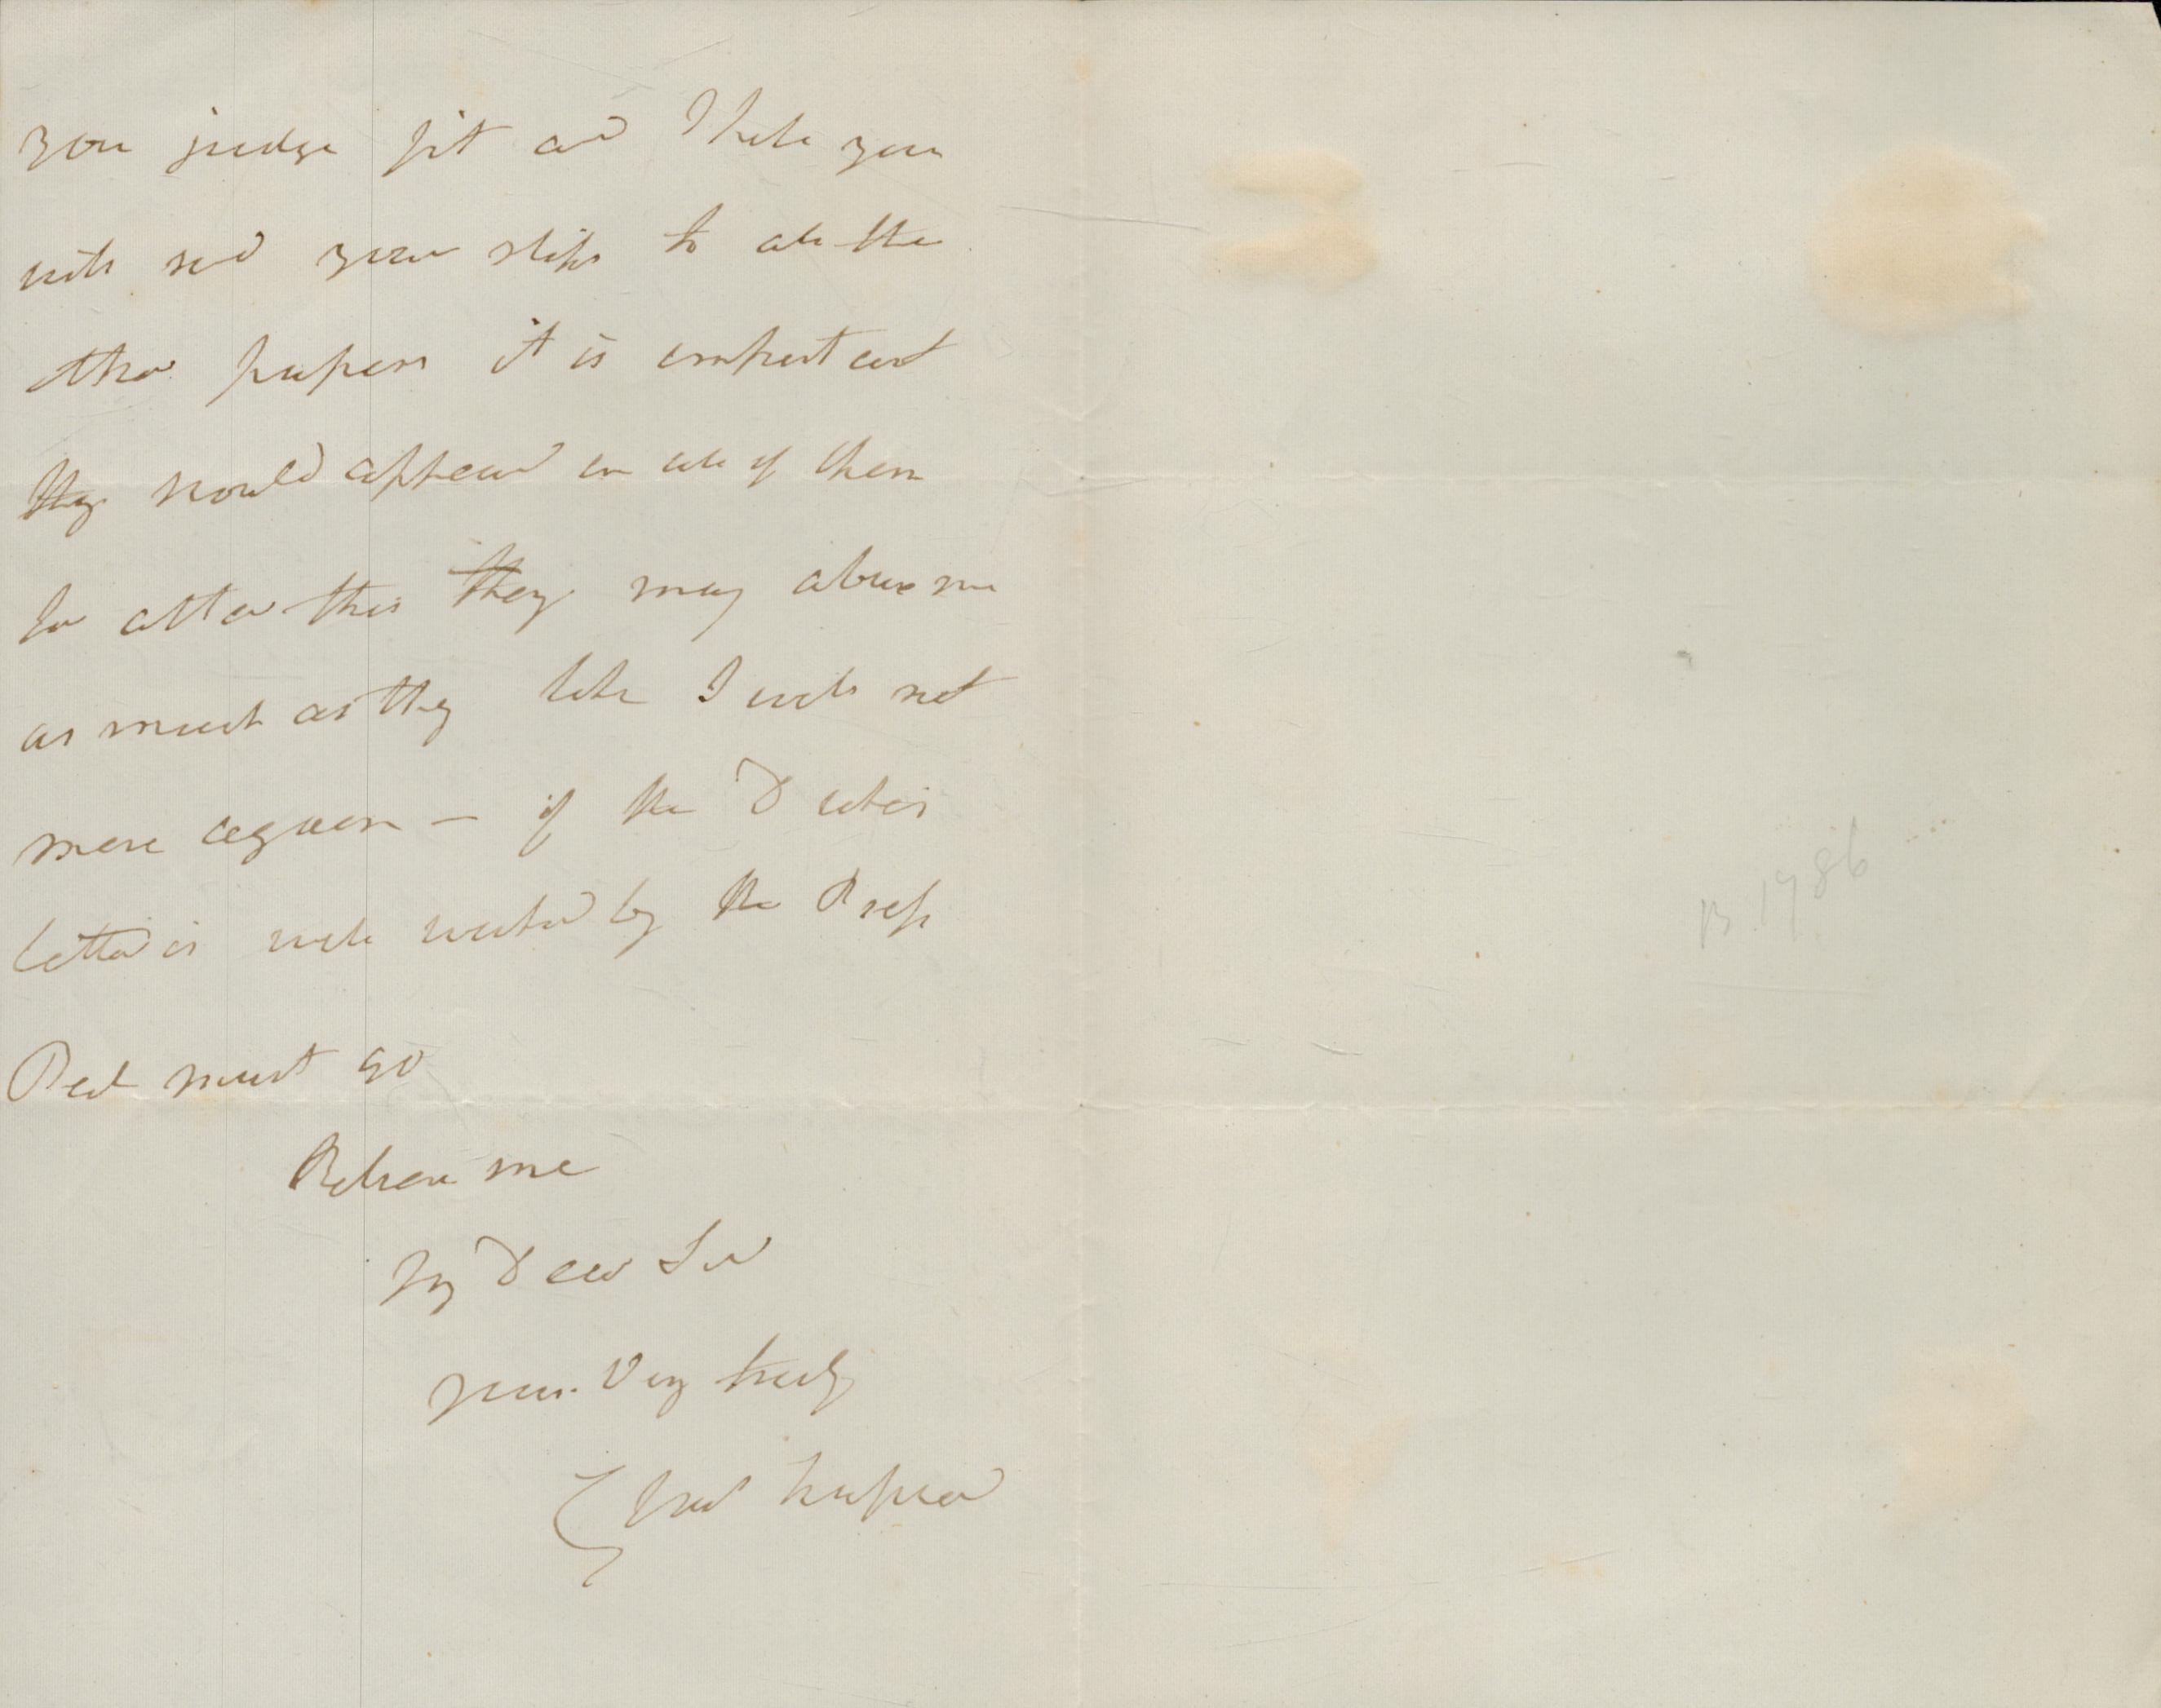 you judge fit and I hope you
will send your slips to all the
other papers it is important
they should appear in all of them
for after this they may abuse me
as much as they like I will not
more again — if the Duke's
letter is well worked by the Press
Peel must go
Believe me
My Dear Sir
yours Very truly
B 1786